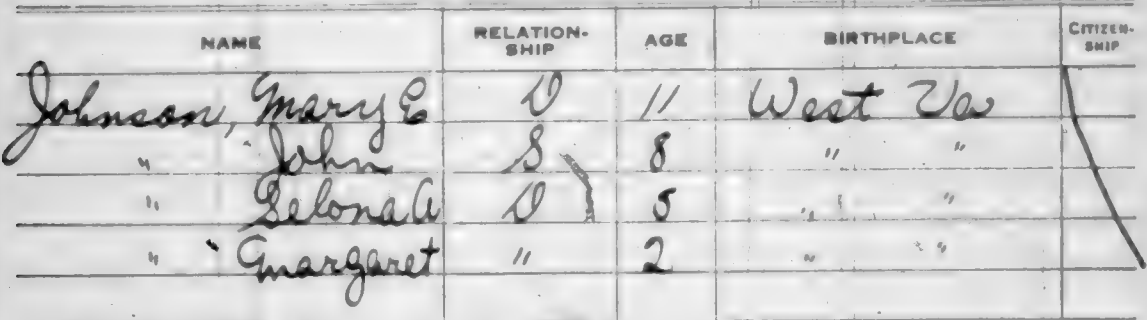 NAME RELATION-SHIP AGE BIRTHPLACE CITIZEN-SHIP
Johnson, Mary E D 11 West Va
" John S 8 " "
" A D 5 " "
" Margaret " 2 " "